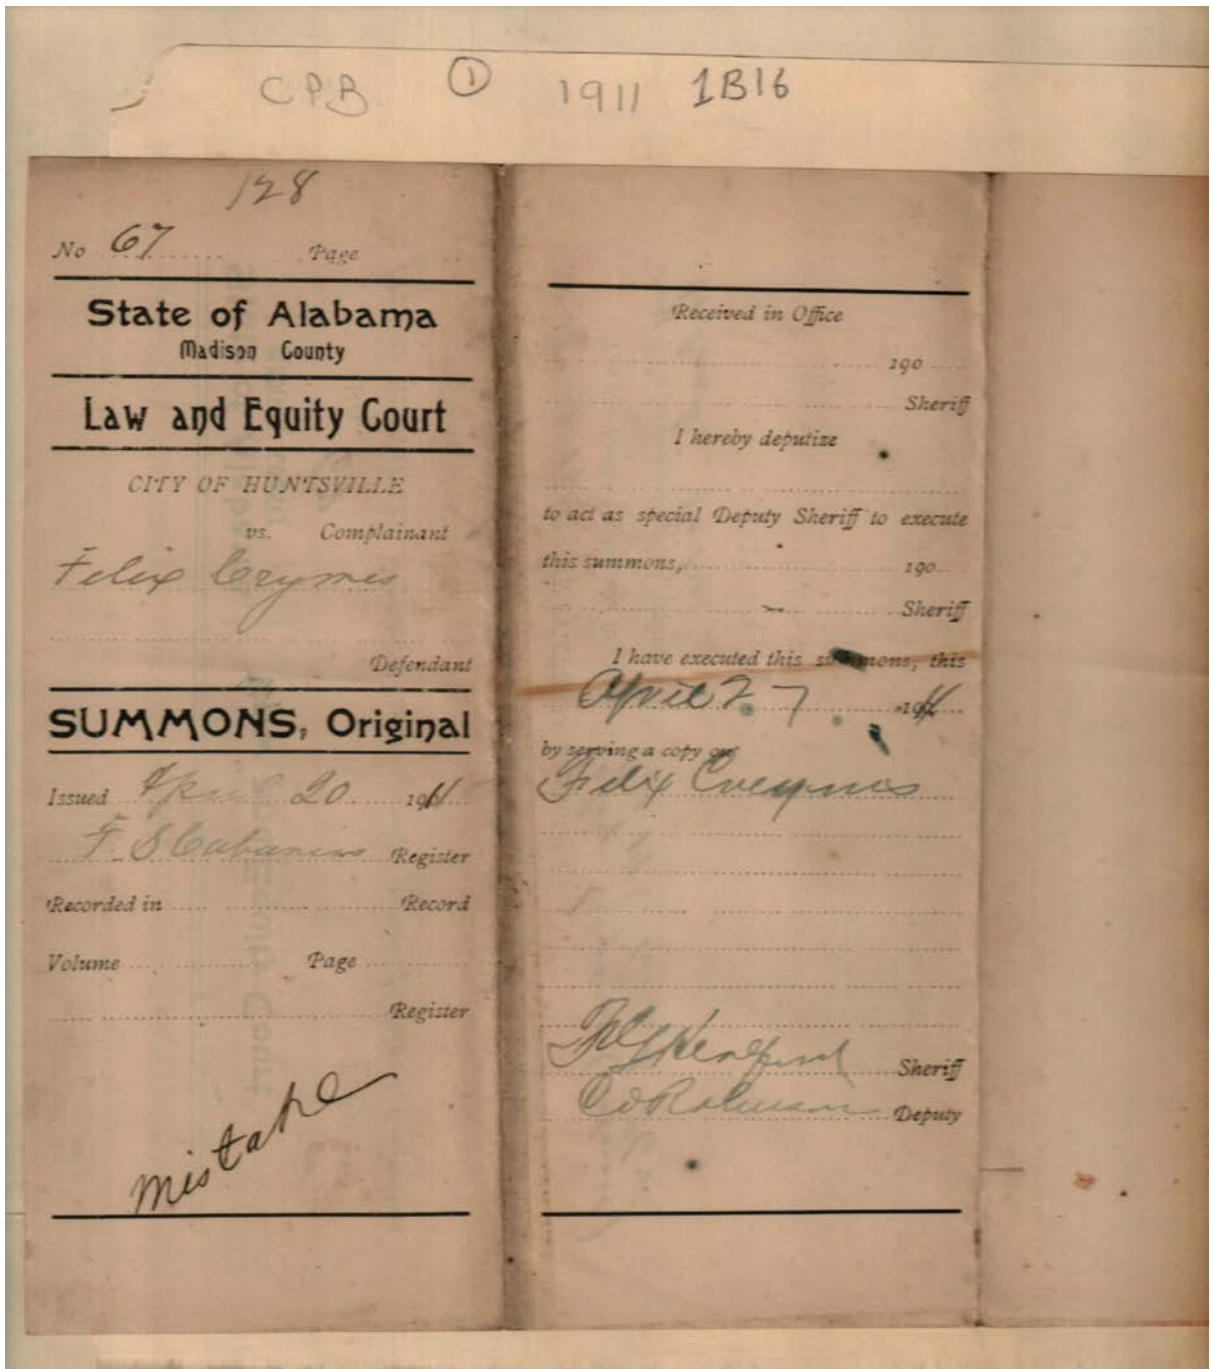 CPB ① 1911 1B16
128
No 67 Page
State of Alabama
Madison County
Law and Equity Court
CITY OF HUNTSVILLE
vs. Complainant
Felix Crymes
Defendant
SUMMONS, Original
Issued April 20 1911
F. S Cabaniss Register
Recorded in Record
Volume Page
Register
Mistake
Received in Office
190
Sheriff
I hereby deputize
to act as special Deputy Sheriff to execute
this summons, 190
Sheriff
I have executed this summons, this
April 27 1911
by serving a copy on
Felix
Sheriff
Deputy